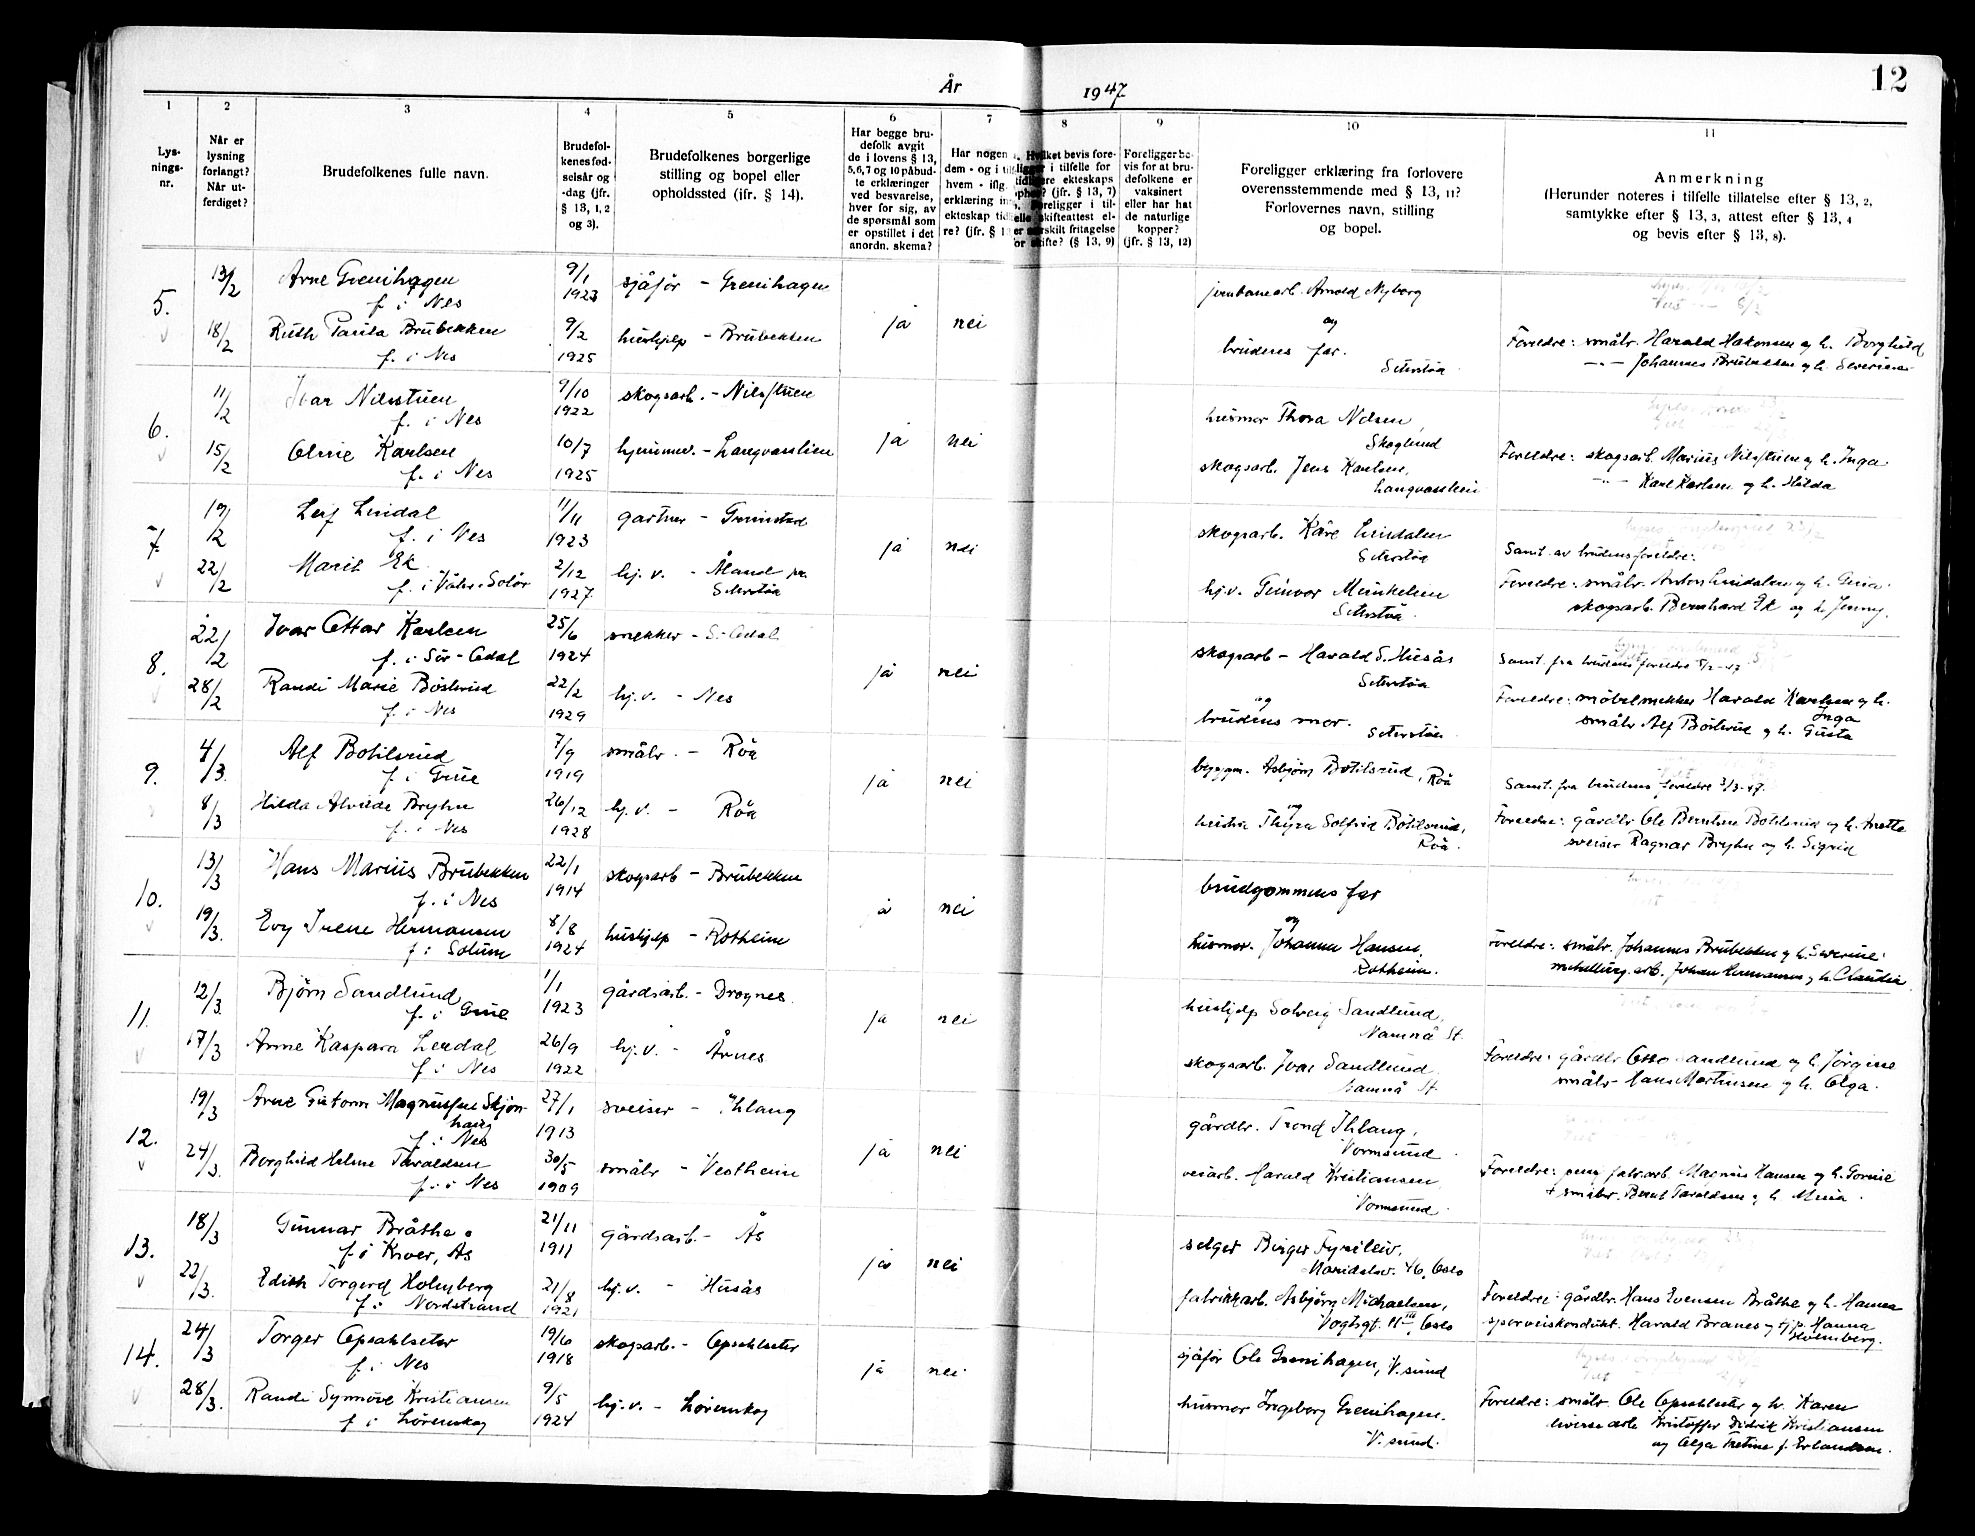 12
År 1947
1 2 3 4 5 6 7 8 9 10 11
Lys-
nings-
nr.
Når er
lysning
forlangt?
Når ut-
ferdiget?
Brudefolkenes fulle navn.
Brudefol-
kenes fød-
selsår og
-dag (jfr.
§ 13, 1, 2
og 3).
Brudefolkenes borgerlige
stilling og bopel eller
opholdssted (jfr. § 14).
Har begge bru-
defolk avgit
de i lovens § 13,
5,6,7 og 10 påbud-
te erklæringer
ved besvarelse,
hver for sig, av
de spørsmål som
er opstillet i det
anordn. skema?
Har nogen
dem - og i
hvem - iflg.
erklæring
ekteskap
re? (jfr. §
bevis fore-
i tilfelle for
ekteskaps
(jfr. § 13, 7)
i til-
skifteattest el-
fritagelse
skifte? (§ 13, 9)
Foreligger be-
vis for at bru-
defolkene er
vaksinert
eller har hat
de naturlige
kopper?
(jfr. § 13, 12)
Foreligger erklæring fra forlovere
overensstemmende med § 13, 11?
Forlovernes navn, stilling
og bopel.
Anmerkning
(Herunder noteres i tilfelle tillatelse efter § 13, 2,
samtykke efter § 13, 3, attest efter § 13, 4
og bevis efter § 13, 8).
5. 13/2 Arne Grenihagen 9/1 1923 sjåfør - Grenihagen
f. i Nes
18/2 Ruth Paula Brubekken 9/2 1925 hushjelp - Brubekken ja nei
f. i Nes
jernbanearb. Arnold Nyborg
og
brudens far.
Seterstøa
Foreldre: småbr. Harald Hakonsen og h. Borghild
-"- Johannes Brubekken og h. Severine
6. 11/2 Ivar Nilsstuen 9/10 1922 skogsarb. - Nilsstuen
f. i Nes
15/2 Oline Karlsen 10/7 1925 hjemmev. - Langvasslien ja nei
f. i Nes
husmor Thora Nilsen,
Skoglund
skogsarb. Jens Karlsen,
Langvasslien
Foreldre: skogsarb. Marius Nilsstuen og h. Inga
-"- Karl Karlsen og h. Hilda
7. 19/2 Leif Lindal 11/11 1923 gartner - Grimstad
f. i Nes
22/2 Marit Ek 2/12 1927 hj.v. - Åland pr. ja nei
f. i Våler i Solør Seterstøa
skogsarb. Kåre Lindalen
Seterstøa
hj.v. Gunvor Minkelien
Seterstøa
Samt. av brudens foreldre:
Foreldre: småbr. Anton Lindalen og h.
skogsarb. Bernhard Ek og h. Jenny.
8. 22/2 Ivar Ottar Karlsen 25/6 1924 snekker - S. Odal
f. i Sør-Odal
28/2 Randi Marie Bøslerud 22/2 1929 hj.v. - Nes ja nei
f. i Nes
skogsarb - Harald S. Husås
Seterstøa
og
brudens mor.
Seterstøa
Samt. fra brudens foreldre
Foreldre: møbelsnekker Harald Karlsen og h.
Inga
småbr Alf Bøslerud og h. Gusta
9. 4/3 Alf Bohlsrud 7/9 1919 småbr. - Röa
f. i Grue
8/3 Hilda Alvilde Bryhn 26/12 1928 hj.v. - Röa ja nei
f. i Nes
byggm. Asbjørn Botilsrud, Röa
og
hustru Thyra Solfrid Botilsrud,
Röa.
Samt. fra brudens foreldre 3/3-47.
Foreldre: gårdbr Ole Bernhus Botilsrud og h. Anette
sveiser Ragnar Bryhn og h. Sigrid
10. 13/3 Hans Marius Brubekken 22/1 1914 skogsarb - Brubekken
f. i Nes
19/3. Evy Irene Hermansen 8/8 1924 hushjelp - Rotheim ja nei
f. i Solum
brudgommens far
og
husmor. Johanna Hansen,
Rotheim.
Foreldre: småbr. Johannes Brubekken og h. Severine.
metallurg. arb. Johan Hermansen og h. Claudia
11. 12/3. Bjørn Sandlund 1/1 1923 gårdsarb. - Drognes
f. i Grue
17/3 Anne Kaspara Lerdal 26/9 1922 hj.v. - Årnes ja nei
f. i Nes
hushjelp Solveig Sandlund,
Namnå St.
skogsarb. Ivar Sandlund
Namnå St
Foreldre: gårdbr Otto Sandlund og h. Jørgine
småbr Hans Martinsen og h. Olga.
12. 19/3 Arne Guttorm Magnussen Skjøn- 27/1 1913 sveiser - Ihlang
haug
f. i Nes
24/3. Borghild Helene Taraldsen 30/5 1909 småbr - Vestheim ja nei
f. i Nes
gårdbr. Trond Ihlang,
Vormsund
veiarb. Harald Kristiansen,
Vormsund.
Foreldre: pens. fabr.arb. Magnus Hansen og h.
+ småbr. Bernt Taraldsen og h.
13. 18/3 Gunnar Bråthe 21/11 1911 gårdsarb. - Ås
f. i Kroer, Ås
22/3. Edith Torgerd Holmberg 21/8 1921 hj.v. - Husås ja nei
f. i Nordstrand
selger Birger Fyrileiv,
Maridalsv. 46, Oslo
fabrikkarb. Asbjørg Michaelsen,
Vogtsgt. 11 III, Oslo
Foreldre: gårdbr. Hans Evensen Bråthe og h. Hanna
sporveiskondukt. Harald Branes og Hanna
Holmberg.
14. 24/3 Torger Opsahlseter 19/6 1918 skogsarb. - Opsahlseter
f. i Nes
28/3. Randi Synnøve Kristiansen 9/5 1924 hj.v. - Lørenskog ja nei
f. i Lørenskog
sjåfør Ole Grenihagen, V.sund
husmor Ingeborg Grenihagen.
V.sund.
Foreldre: småbr. Ole Opsahlseter og h. Karen
Kristoffer Didrik Kristiansen
og Olga f. Erlandsen.